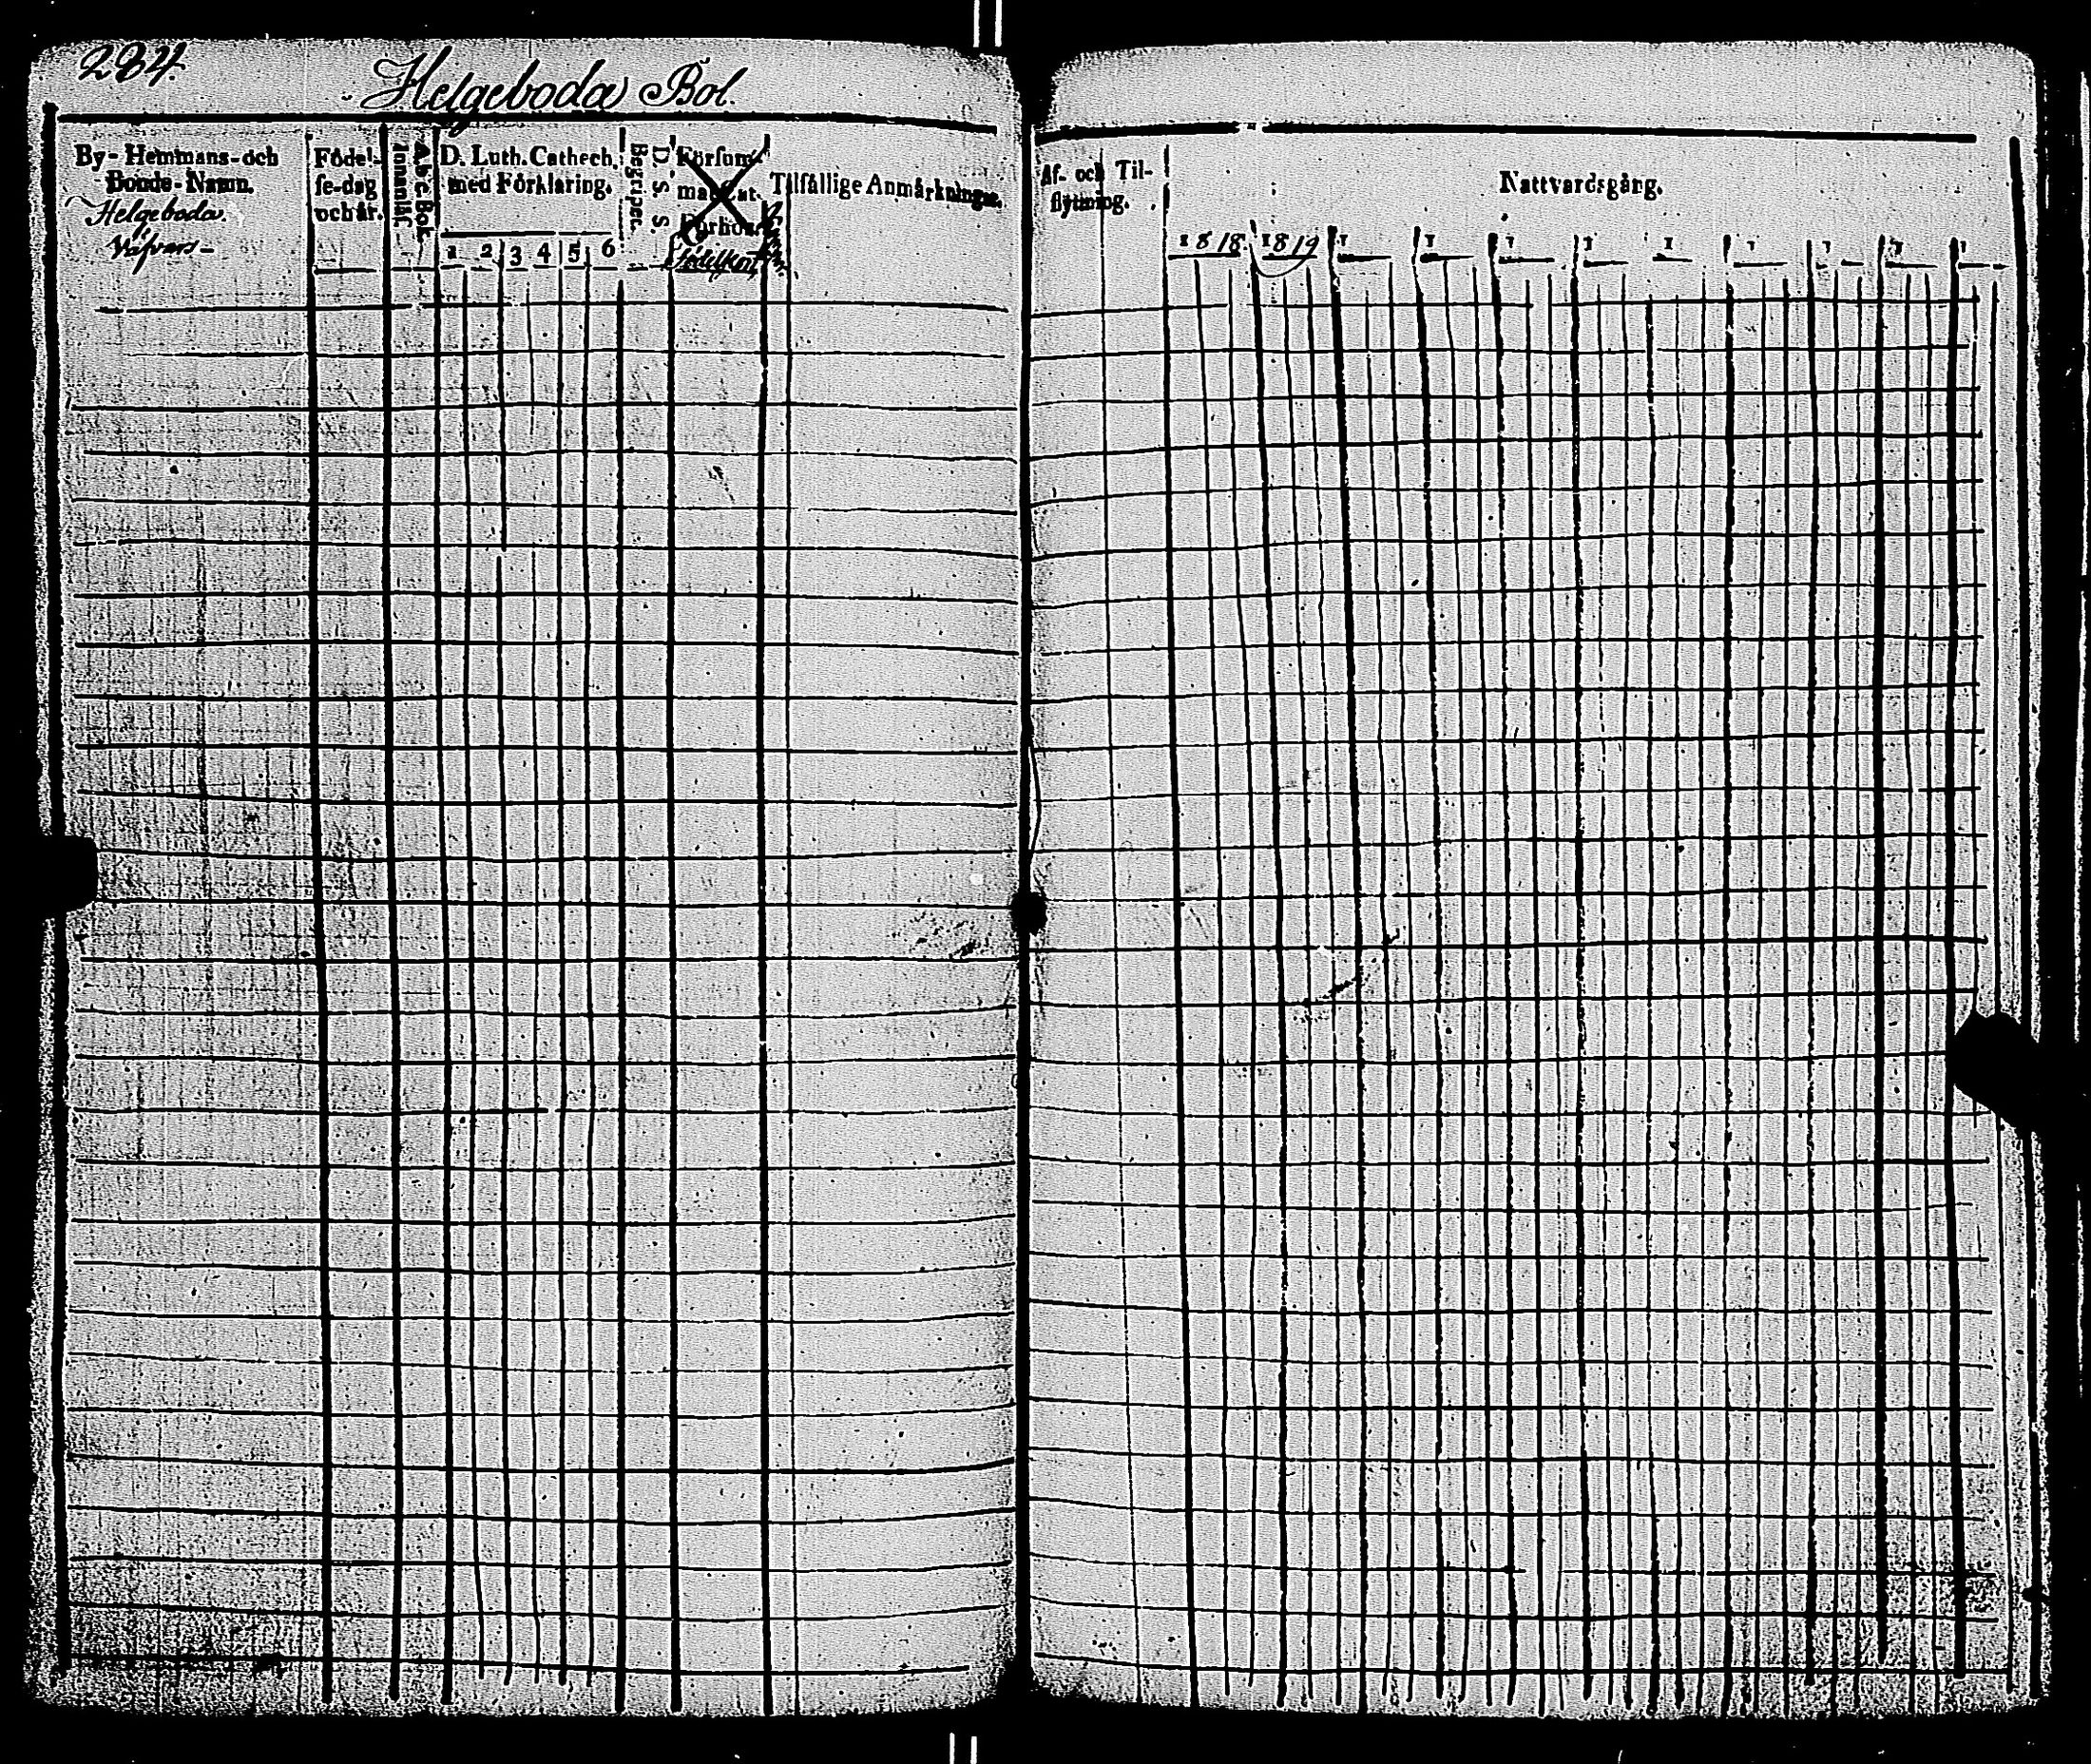 284.
Helgeboda Bol.
By- Hemmans- och
Bonde- Namn.
Helgeboda.
Födel-
se-dag
och år.
A b c Bok
D. Luth. Cathech.
med Förklaring.
1 2 3 4 5 6
D. S. S.
Begripet.
Försum-
mat Cat.
Förhör.
Tilfällige Anmärkningar.
Af- och Til-
flyttning.
Nattvardsgång.
1818. 1819 1 1 1 1 1 1 1 1 1